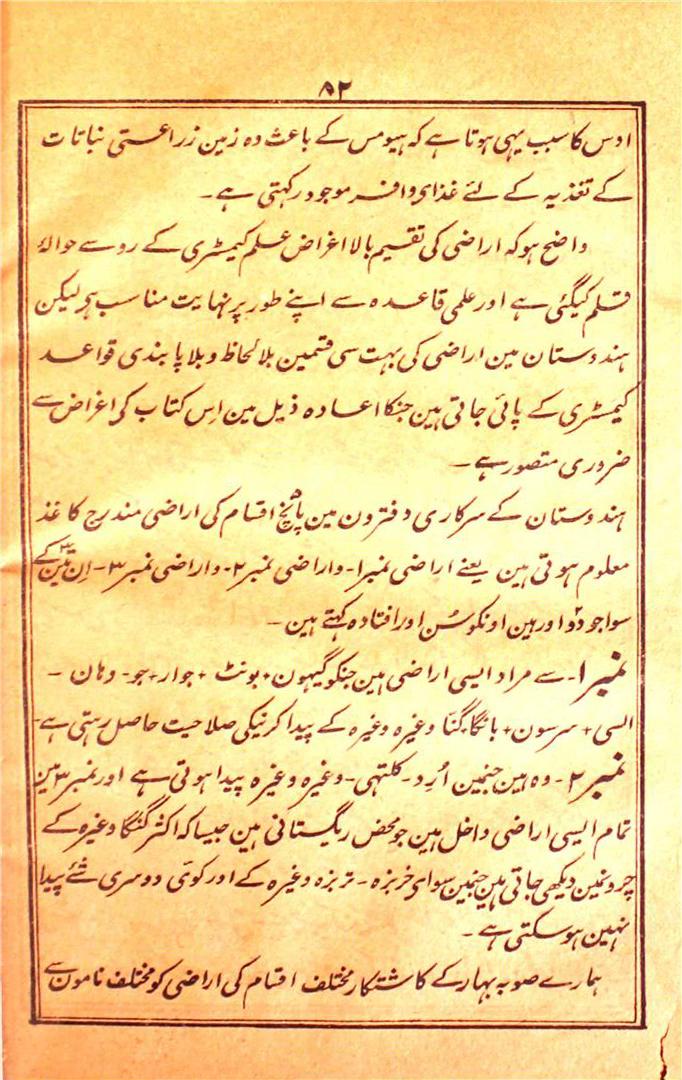 ۵۲
اوس کا سبب یہی ہوتا ہے کہ ہیومس کے باعث وہ زمین زراعتی نباتات
کے تغذیہ کے لئے غذای وافر موجود رکہتی ہے۔
واضح ہو کہ اراضی کی تقسیم بالا اغراض علم کیمسٹری کے رو سے حوالۂ
قلم کیگئی ہے اور علمی قاعدہ سے اپنے طور پر نہایت مناسب ہی لیکن
ہندوستان مین اراضی کی بہت سی قسمین بلا لحاظ و بلا پابندی قواعد
کیمسٹری کے پائی جاتی ہین جنکا اعادہ ذیل مین اِس کتاب کی اغراض سے
ضروری متصور ہے۔
ہندوستان کے سرکاری دفترون مین پانچ اقسام کی اراضی مندرج کاغذ
معلوم ہوتی ہین یعنے اراضی نمبر ۱۔ و اراضی نمبر ۲۔ و اراضی نمبر ۳۔ اِن تین کے
سوا جو دو اور ہین اونکو سُن اور افتادہ کہتے ہین۔
نمبر ۱۔ سے مراد ایسی اراضی ہین جنکو گیہون + بونٹ + جوار + جو۔ دہان۔
السی + سرسون + بانگا + گنّا وغیرہ وغیرہ کے پیدا کرنیکی صلاحیت حاصل رہتی ہے۔
نمبر ۲۔ وہ ہین جنمین اُرد۔ کلتہی۔ وغیرہ وغیرہ پیدا ہوتی ہے اور نمبر ۳ مین
تمام ایسی اراضی داخل ہین جو محض ریگستانی ہین جیسا کہ اکثر گنگا وغیرہ کے
چرونمین دیکہی جاتی ہین جنمین سوای خربزہ۔ تربزہ وغیرہ کے اور کوئی دوسری شئے پیدا
نہین ہو سکتی ہے۔
ہمارے صوبہ بہار کے کاشتکار مختلف اقسام کی اراضی کو مختلف نامون سے